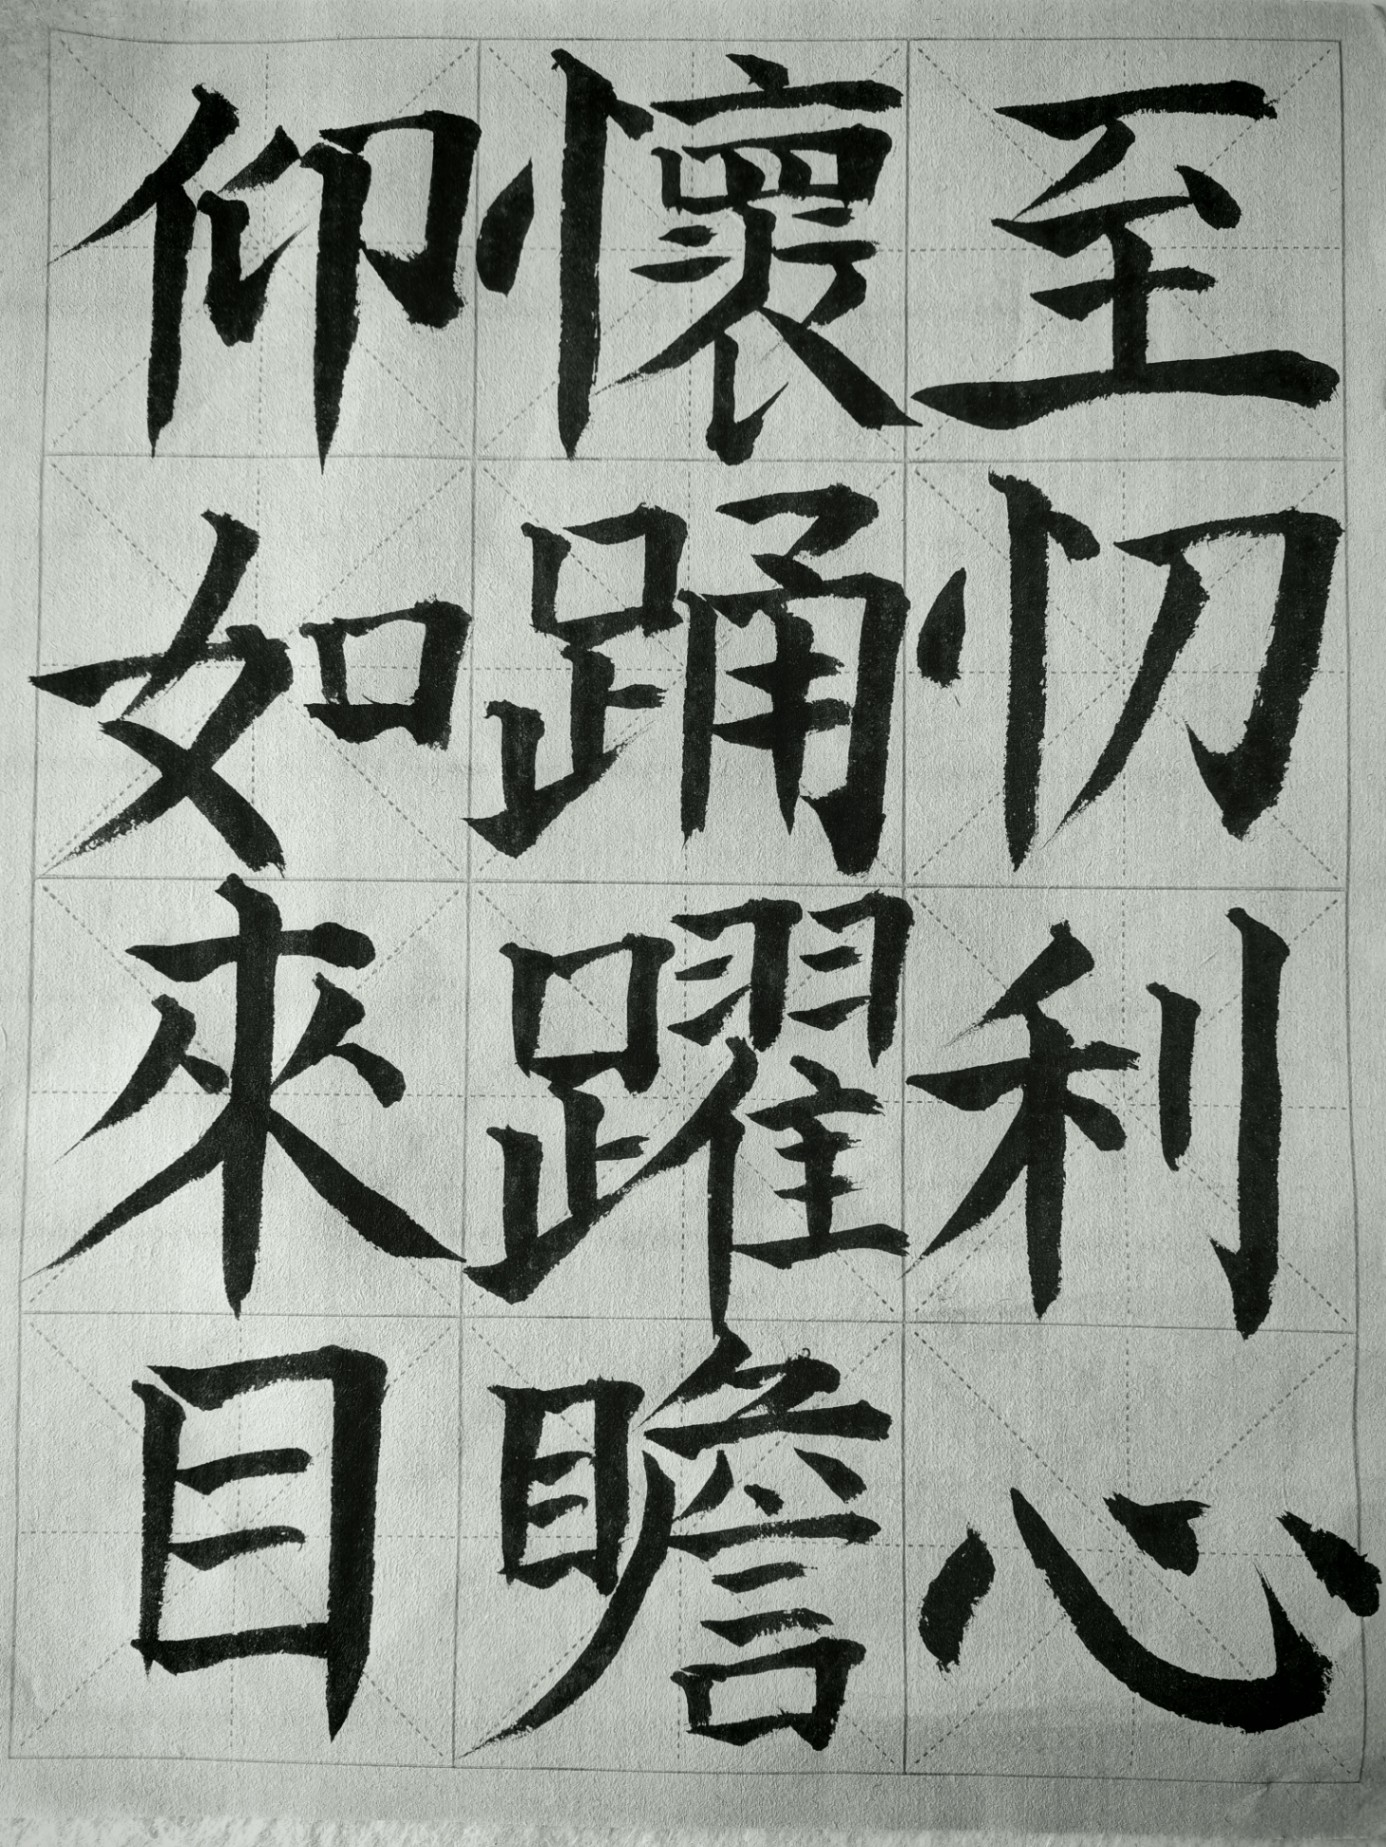 至忉利心
懷踊躍瞻
仰如來目